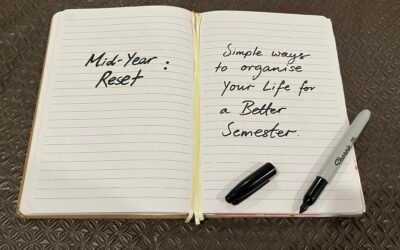 Mid-Year :
Reset
Simple ways
to organise
Your Life for
a Better
Semester.
Sharpie